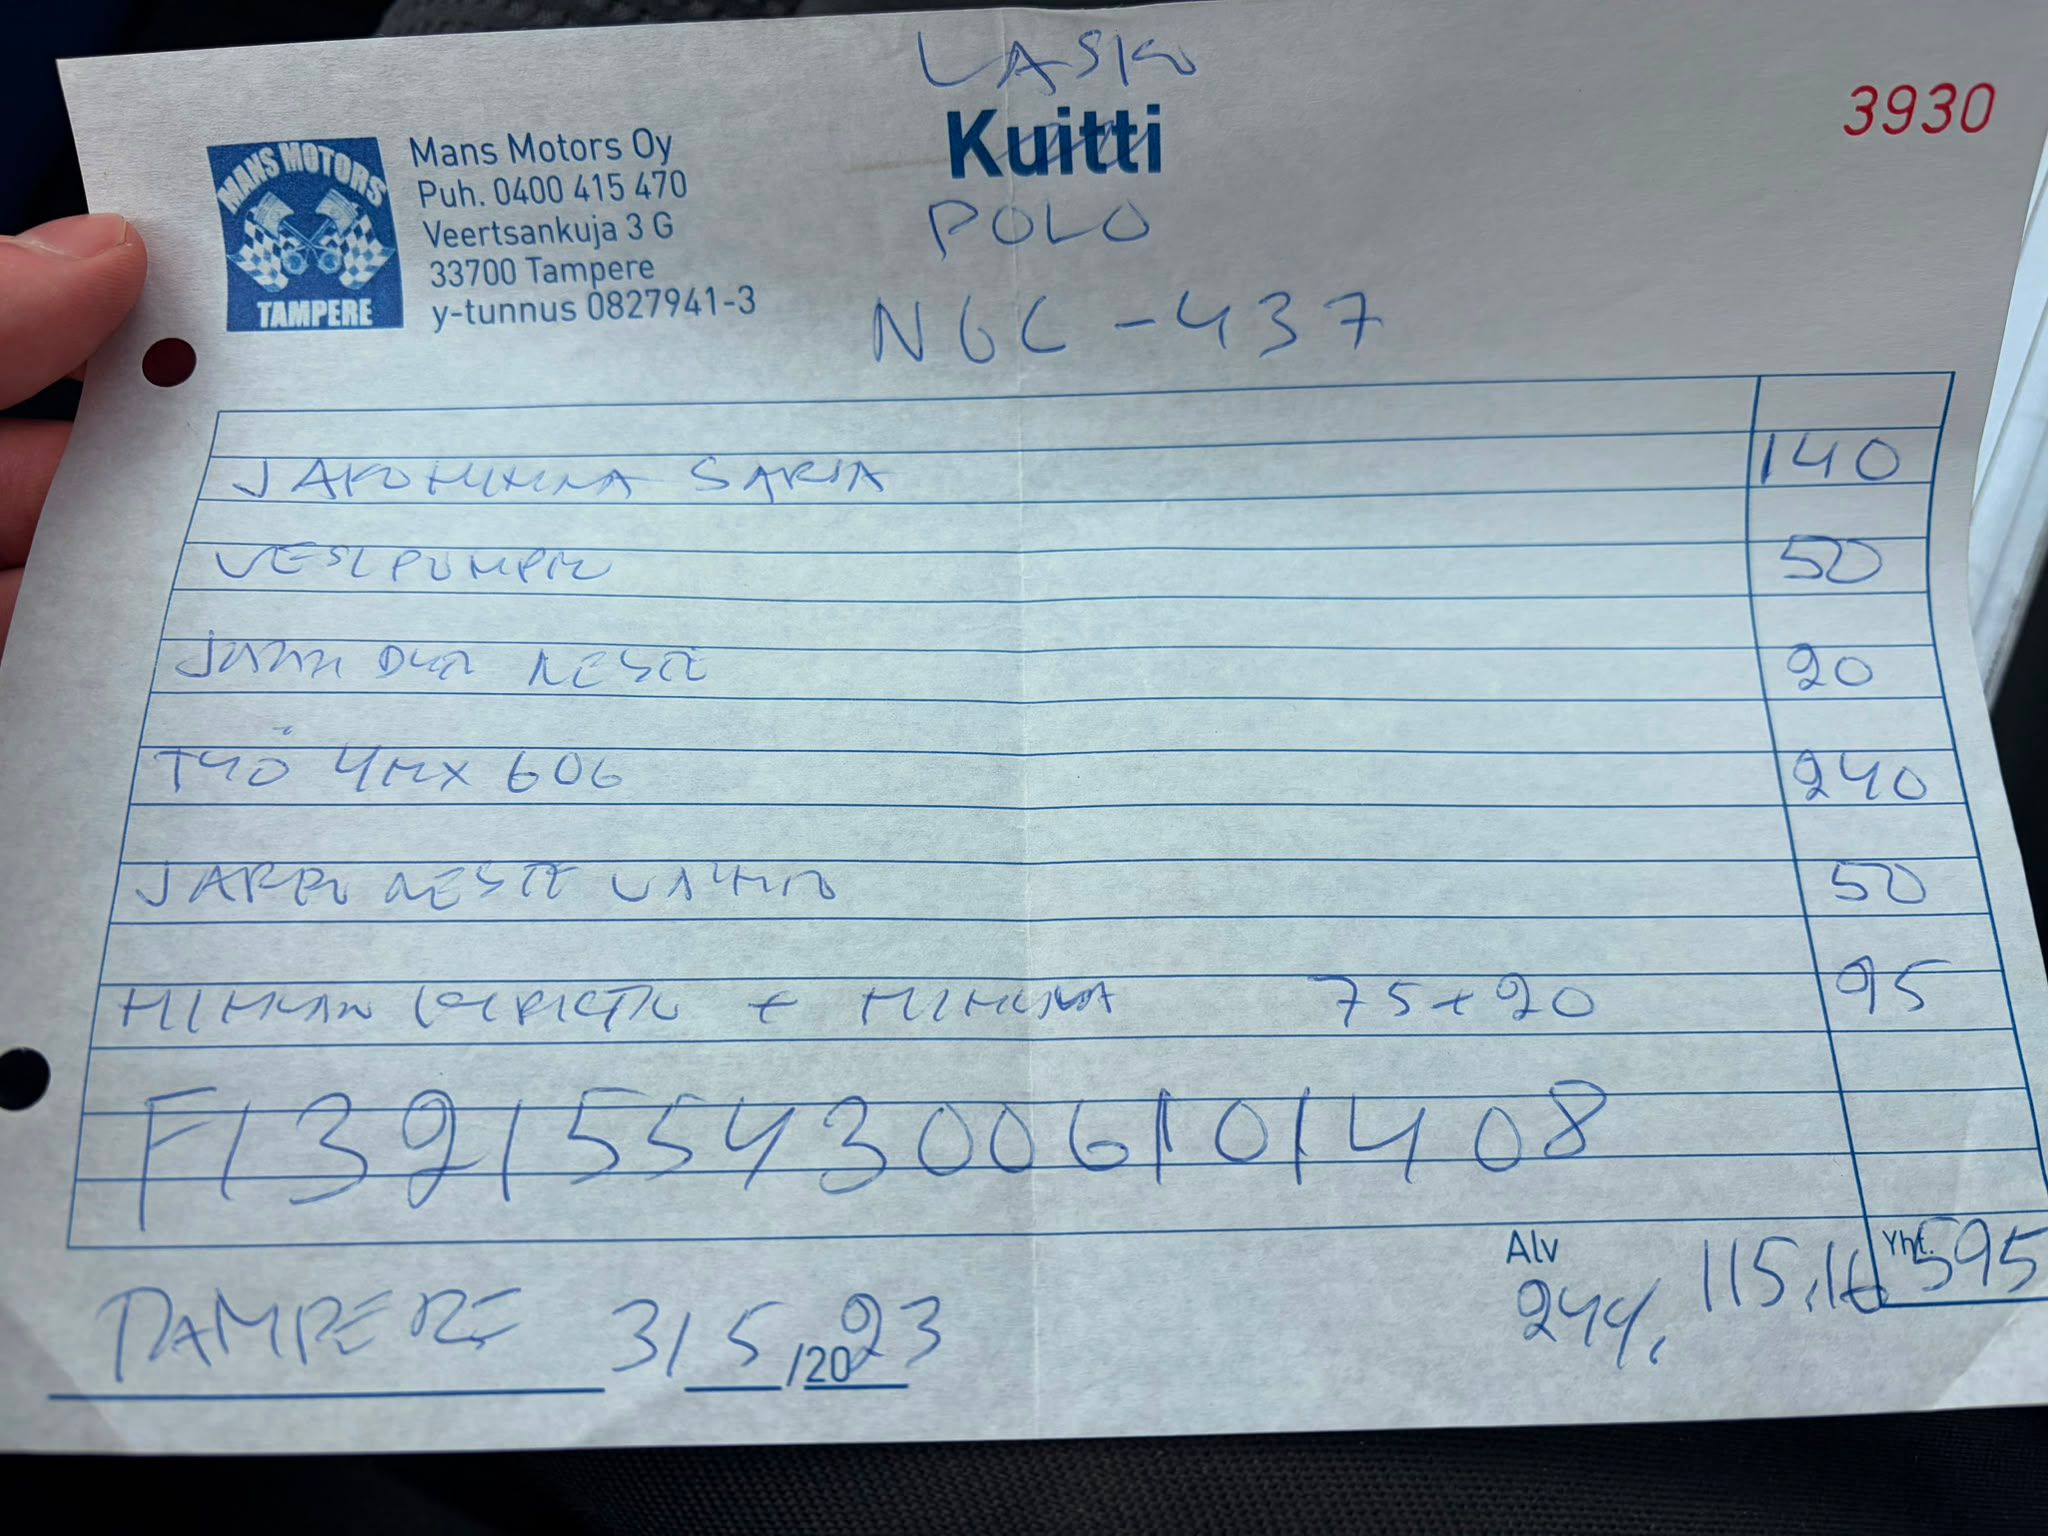 LASKU
Kuitti
3930
MANS MOTORS
TAMPERE
Mans Motors Oy
Puh. 0400 415 470
Veertsankuja 3 G
33700 Tampere
y-tunnus 0827941-3
POLO
NGC-437
JAKOHIHNA SARJA 140
VESIPUMPPU 50
JÄÄHDYT NESTE 20
TYÖ 4H X 60€ 240
JARRU NESTE VAIHTO 50
HIHNAN KIRISTIN + HIHNA 75+20 95
FI3215543006101408
Alv 24%. 115,16 Yht. 595
TAMPERE 31/5/2023